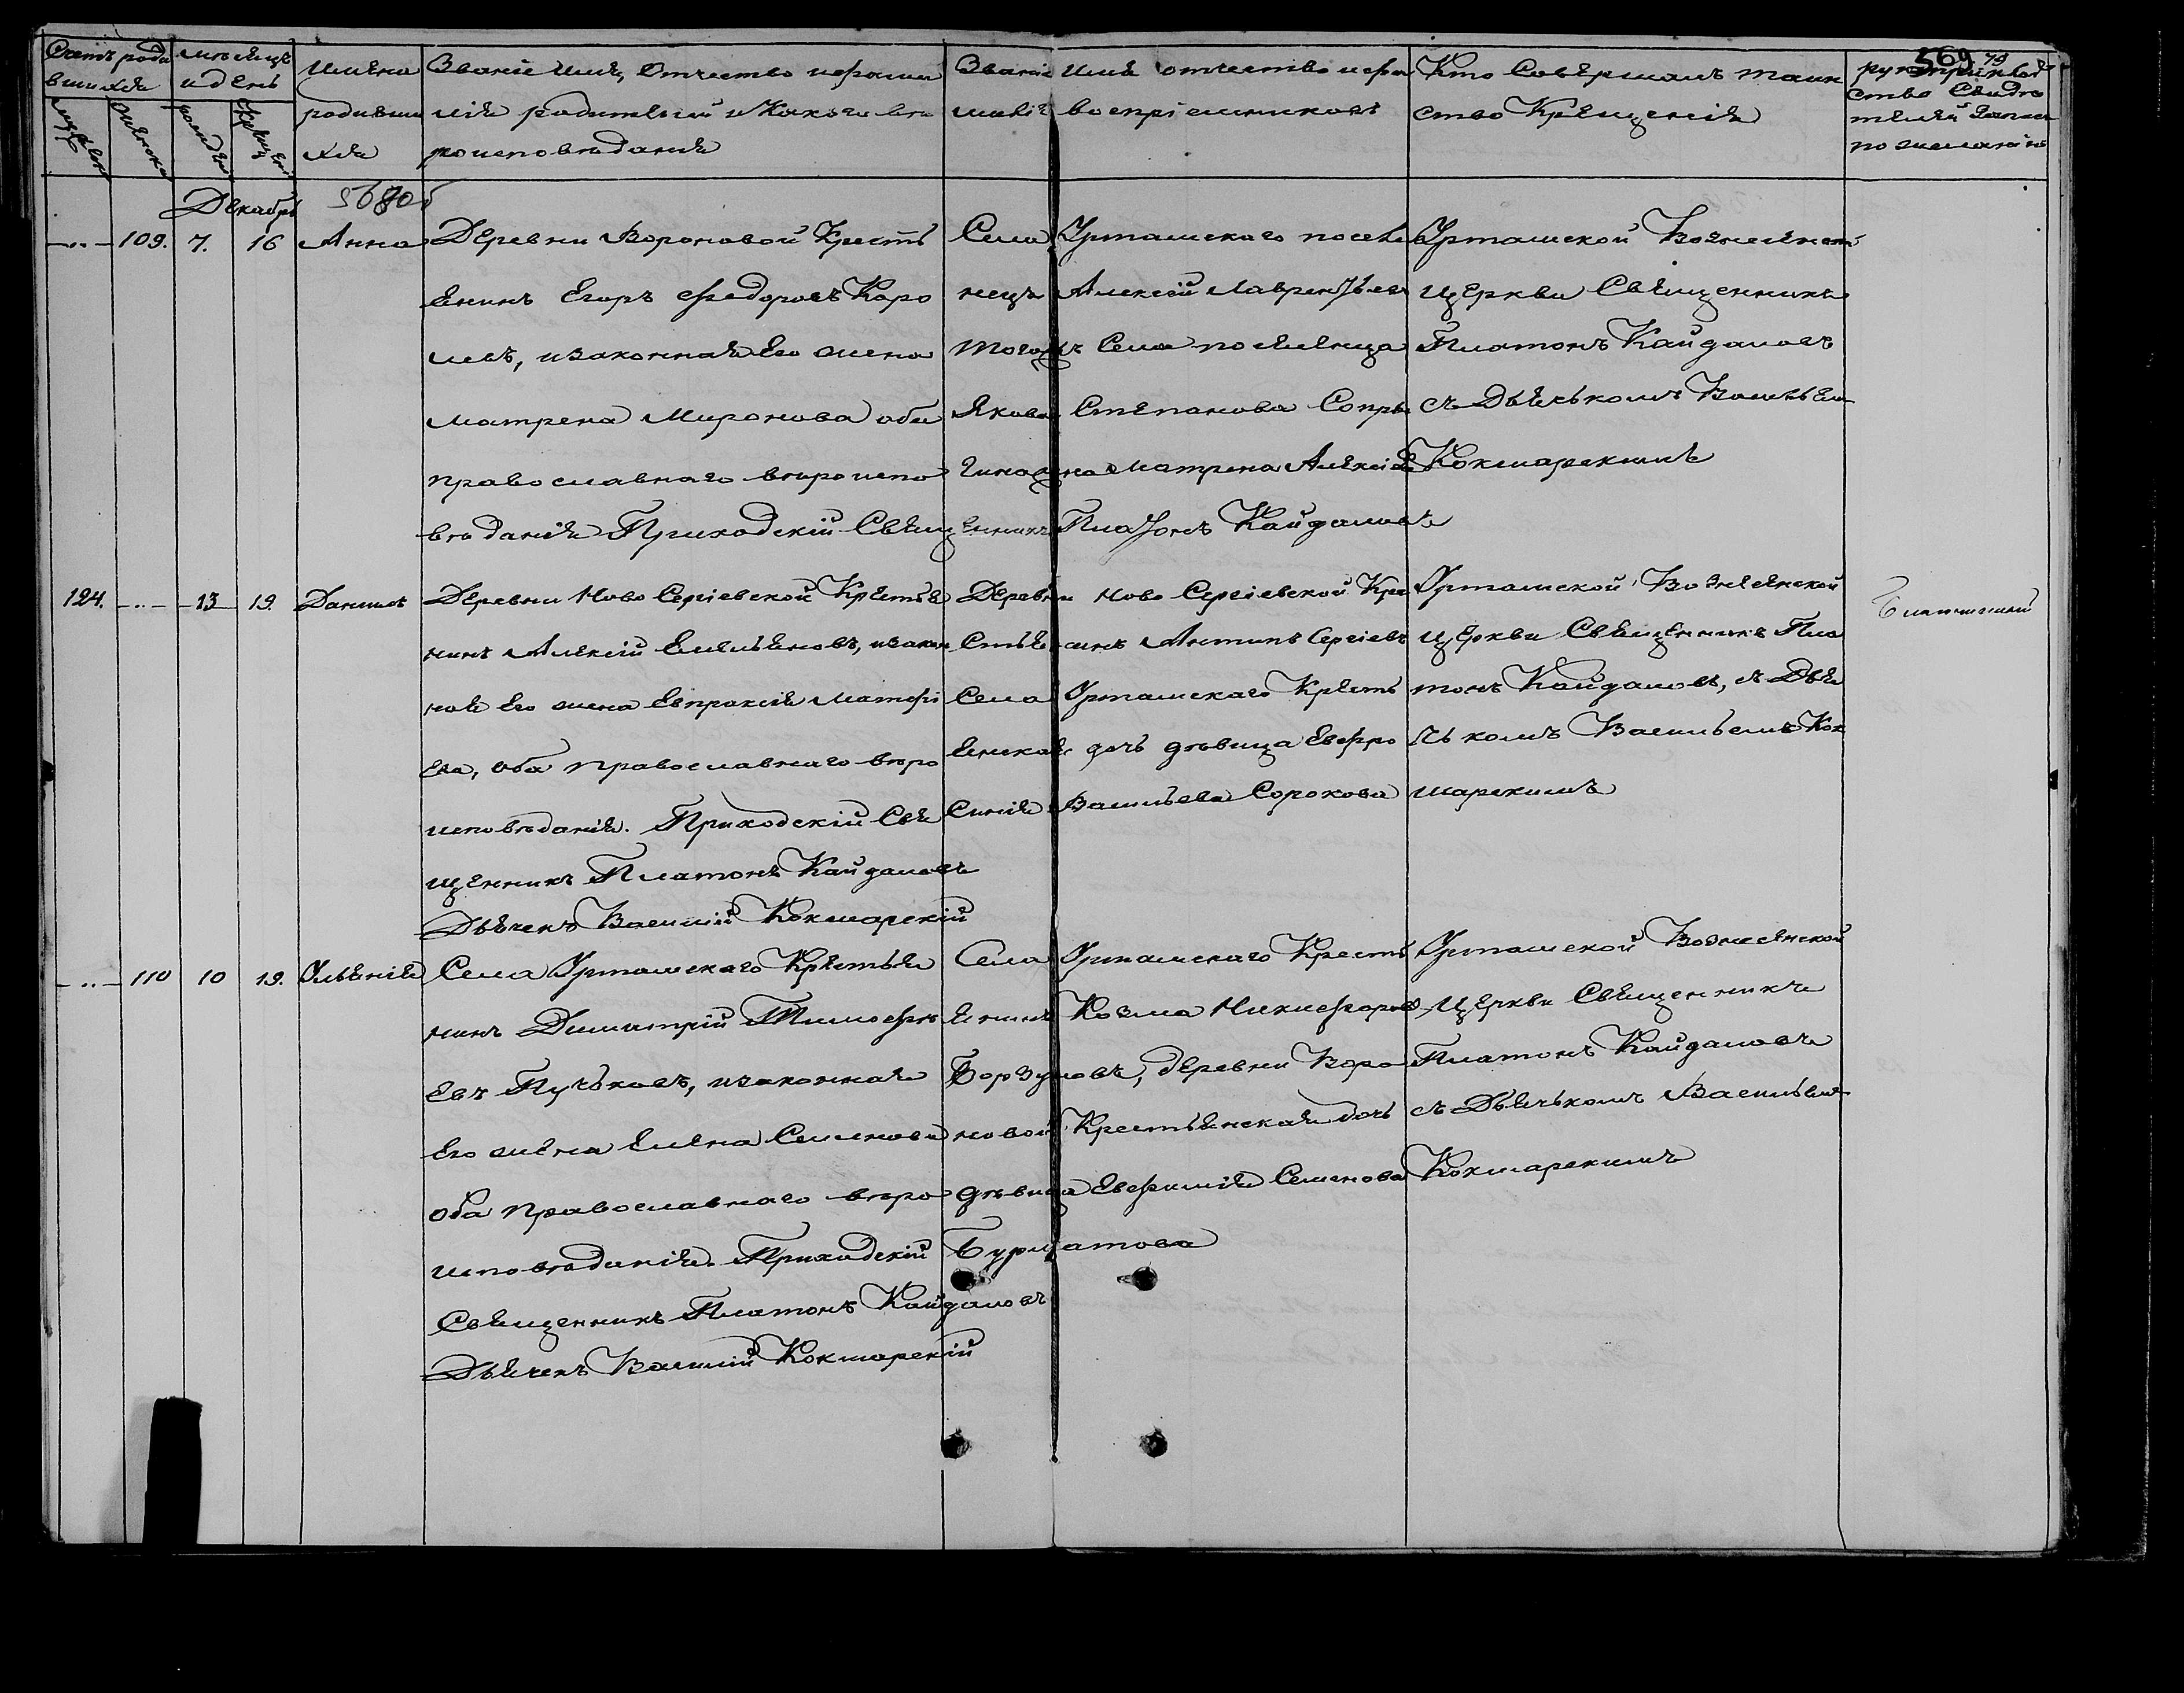 569 79
Счетъ роди
вшихся
Мѣсяцъ
и день
Имена
родивши
хся
Званіе Имя, Отчество и фами
лія родителей и Какого вѣ
роисповѣданія
Званіе имя отчество и фа
милія воспріемниковъ
Кто Совершалъ таин
ство Крещенія
рукоприклад
ство Свидѣ
телей Записи
по желанію
Декабрь
109. 7. 16 Анна
Деревни Вороновой Кресть
янинъ Егоръ Федоровъ Коро
левъ, изаконная Его жена
Матрена Миронова оба
православнаго вѣроиспо
вѣданія Приходскій Священникъ Платонъ Кайдаловъ
Села Урташскаго поселе
нецъ Алексѣй Лаврентьевъ
Тогожъ Села поселенца
Якова Степанова Сопры
гина жена Матрена Алексѣева
Урташской Вознесенской
церкви Священникъ
Платонъ Кайдаловъ
съ Дьячькомъ Васильемъ
Кокшарскимъ
124. 13 19. Даниилъ
Деревни Ново Сергіевской Крестья
нинъ Алексѣй Емельяновъ, изакон
ная Его жена Евпраксія Матфѣ
ева, оба Православнаго вѣро
исповѣданія. Приходскій Свя
щенникъ Платонъ Кайдаловъ
Дьячекъ Василій Кокшарскій
Деревни Ново Сергіевской Кре
стьянинъ Антипъ Сергіевъ
Села Урташскаго Кресть
янская дочь дѣвица Евфро
синія Васильева Сорокова
Урташской Вознесенской
церкви Священникъ Пла
тонъ Кайдаловъ, съ Дья
чькомъ Васильемъ Кок
шарскимъ
110 10 19. Ульянія
Села Урташскаго Крестья
нинъ Димитрій Тимофѣ
евъ Пучьковъ, изаконная
Его жена Елена Семенова
оба Православнаго вѣро
исповѣданія. Приходскій
Священникъ Платонъ Кайдаловъ
Дьячекъ Василій Кокшарскій
Села Урташскаго Кресть
янинъ Козма Никифоровъ
Борзуновъ, деревни Воро
новой Крестьянская дочь
дѣвица Евфимія Семенова
Бурматова
Урташской Вознесенской
Церкви Священникъ
Платонъ Кайдаловъ
съ Дьячькомъ Васильемъ
Кокшарскимъ